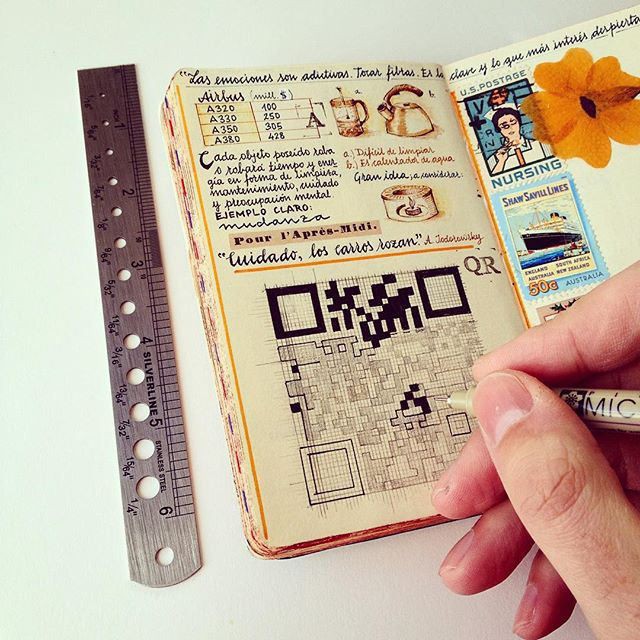 "Las emociones son adictivas. Tocar fibras. Es la clave y lo que más interés despierta
Airbus (mill. $)
A320 100
A330 250
A350 305
A380 428
A
a.
b.
Cada objeto poseído roba
o robará tiempo y ener
gía en forma de limpieza,
mantenimiento, cuidado
y preocupación mental.
EJEMPLO CLARO:
mudanza
a) Difícil de limpiar
b) Es calentador de agua
Gran idea, a considerar:
Pour l'Après-Midi.
"Cuidado, los carros rozan" A. Jodorowsky
QR
U.S. POSTAGE
NURSING
SHAW SAVILL LINES
ENGLAND SOUTH AFRICA
AUSTRALIA NEW ZEALAND
50c AUSTRALIA
MIC
1
2
3
4
5
6
SILVERLINE
STAINLESS STEEL
5/32
11/64
3/16
13/64
7/32
15/64
1/4"